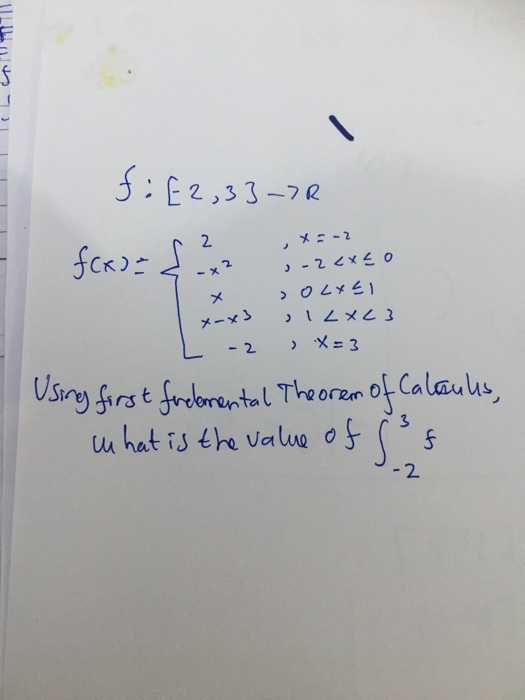 f : [2,3] → R
f(x) = { 2 , x = -2
-x² , -2 < x ≤ 0
x , 0 < x ≤ 1
x-x3 , 1 < x < 3
-2 , x = 3
Using first fndemental Theorem of Calculus,
what is the value of ∫₋₂³ f